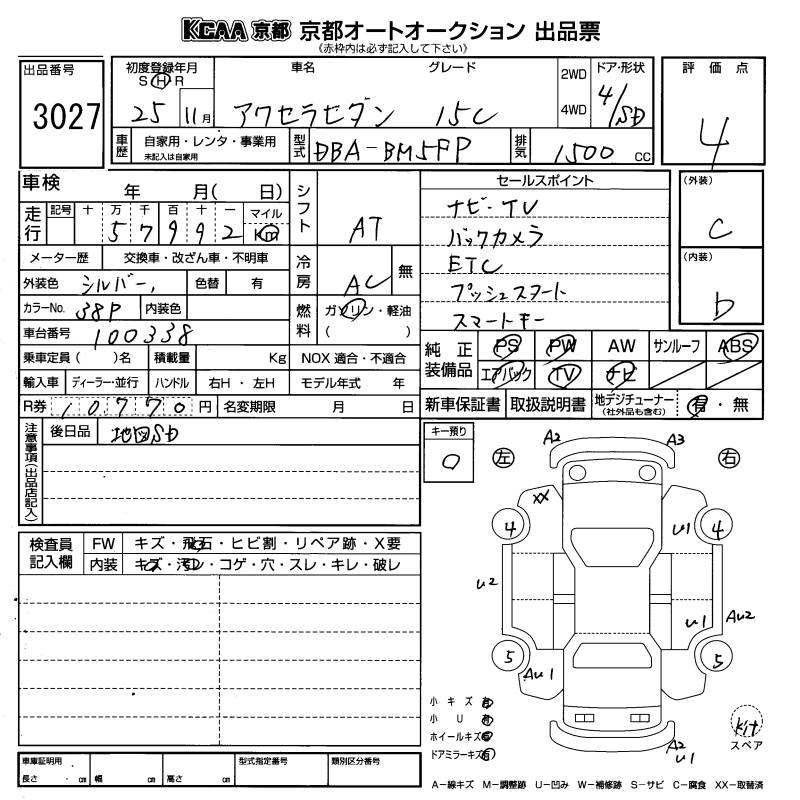 KCAA 京都 京都オートオークション 出品票
(赤枠内は必ず記入して下さい)
出品番号
3027
初度登録年月
S H R
25 11月
車名 グレード
アクセラセダン 15C
2WD
4WD
ドア・形状
4/SD
評価点
4
車歴
自家用・レンタ・事業用
未記入は自家用
型式
DBA-BM5FP
排気
1500 cc
車検 年 月( 日)
走行
記号 十 万 千 百 十 一 マイル
5 7 9 9 2 Km
シフト
AT
セールスポイント
ナビ-TV
バックカメラ
ETC
プッシュスタート
スマートキー
(外装)
C
(内装)
b
メーター歴 交換車・改ざん車・不明車
外装色 シルバー, 色替 有
冷房
AC 無
カラーNo. 38P 内装色
燃料
ガソリン・軽油
( )
車台番号 100338
乗車定員( )名 積載量 Kg NOX 適合・不適合
輸入車 ディーラー・並行 ハンドル 右H・左H モデル年式 年
R券 10770 円 名変期限 月 日
純正装備品
PS PW AW サンルーフ ABS
エアバック TV ナビ
新車保証書 取扱説明書 地デジチューナー
(社外品も含む) 有・無
注意事項(出品店記入)
後日品 地図SD
キー預り
0
左
右
A2
A3
XX
4
4
U1
U2
U1
AU2
5
5
AU1
A2
U1
検査員記入欄
FW キズ・飛石・ヒビ割・リペア跡・X要
内装 キズ・汚レ・コゲ・穴・スレ・キレ・破レ
小キズ 有
小U 有
ホイールキズ 有
ドアミラーキズ 有
kit
スペア
車庫証明用
長さ ・ cm 幅 cm 高さ cm
型式指定番号
類別区分番号
A-線キズ M-調整跡 U-凹み W-補修跡 S-サビ C-腐食 XX-取替済